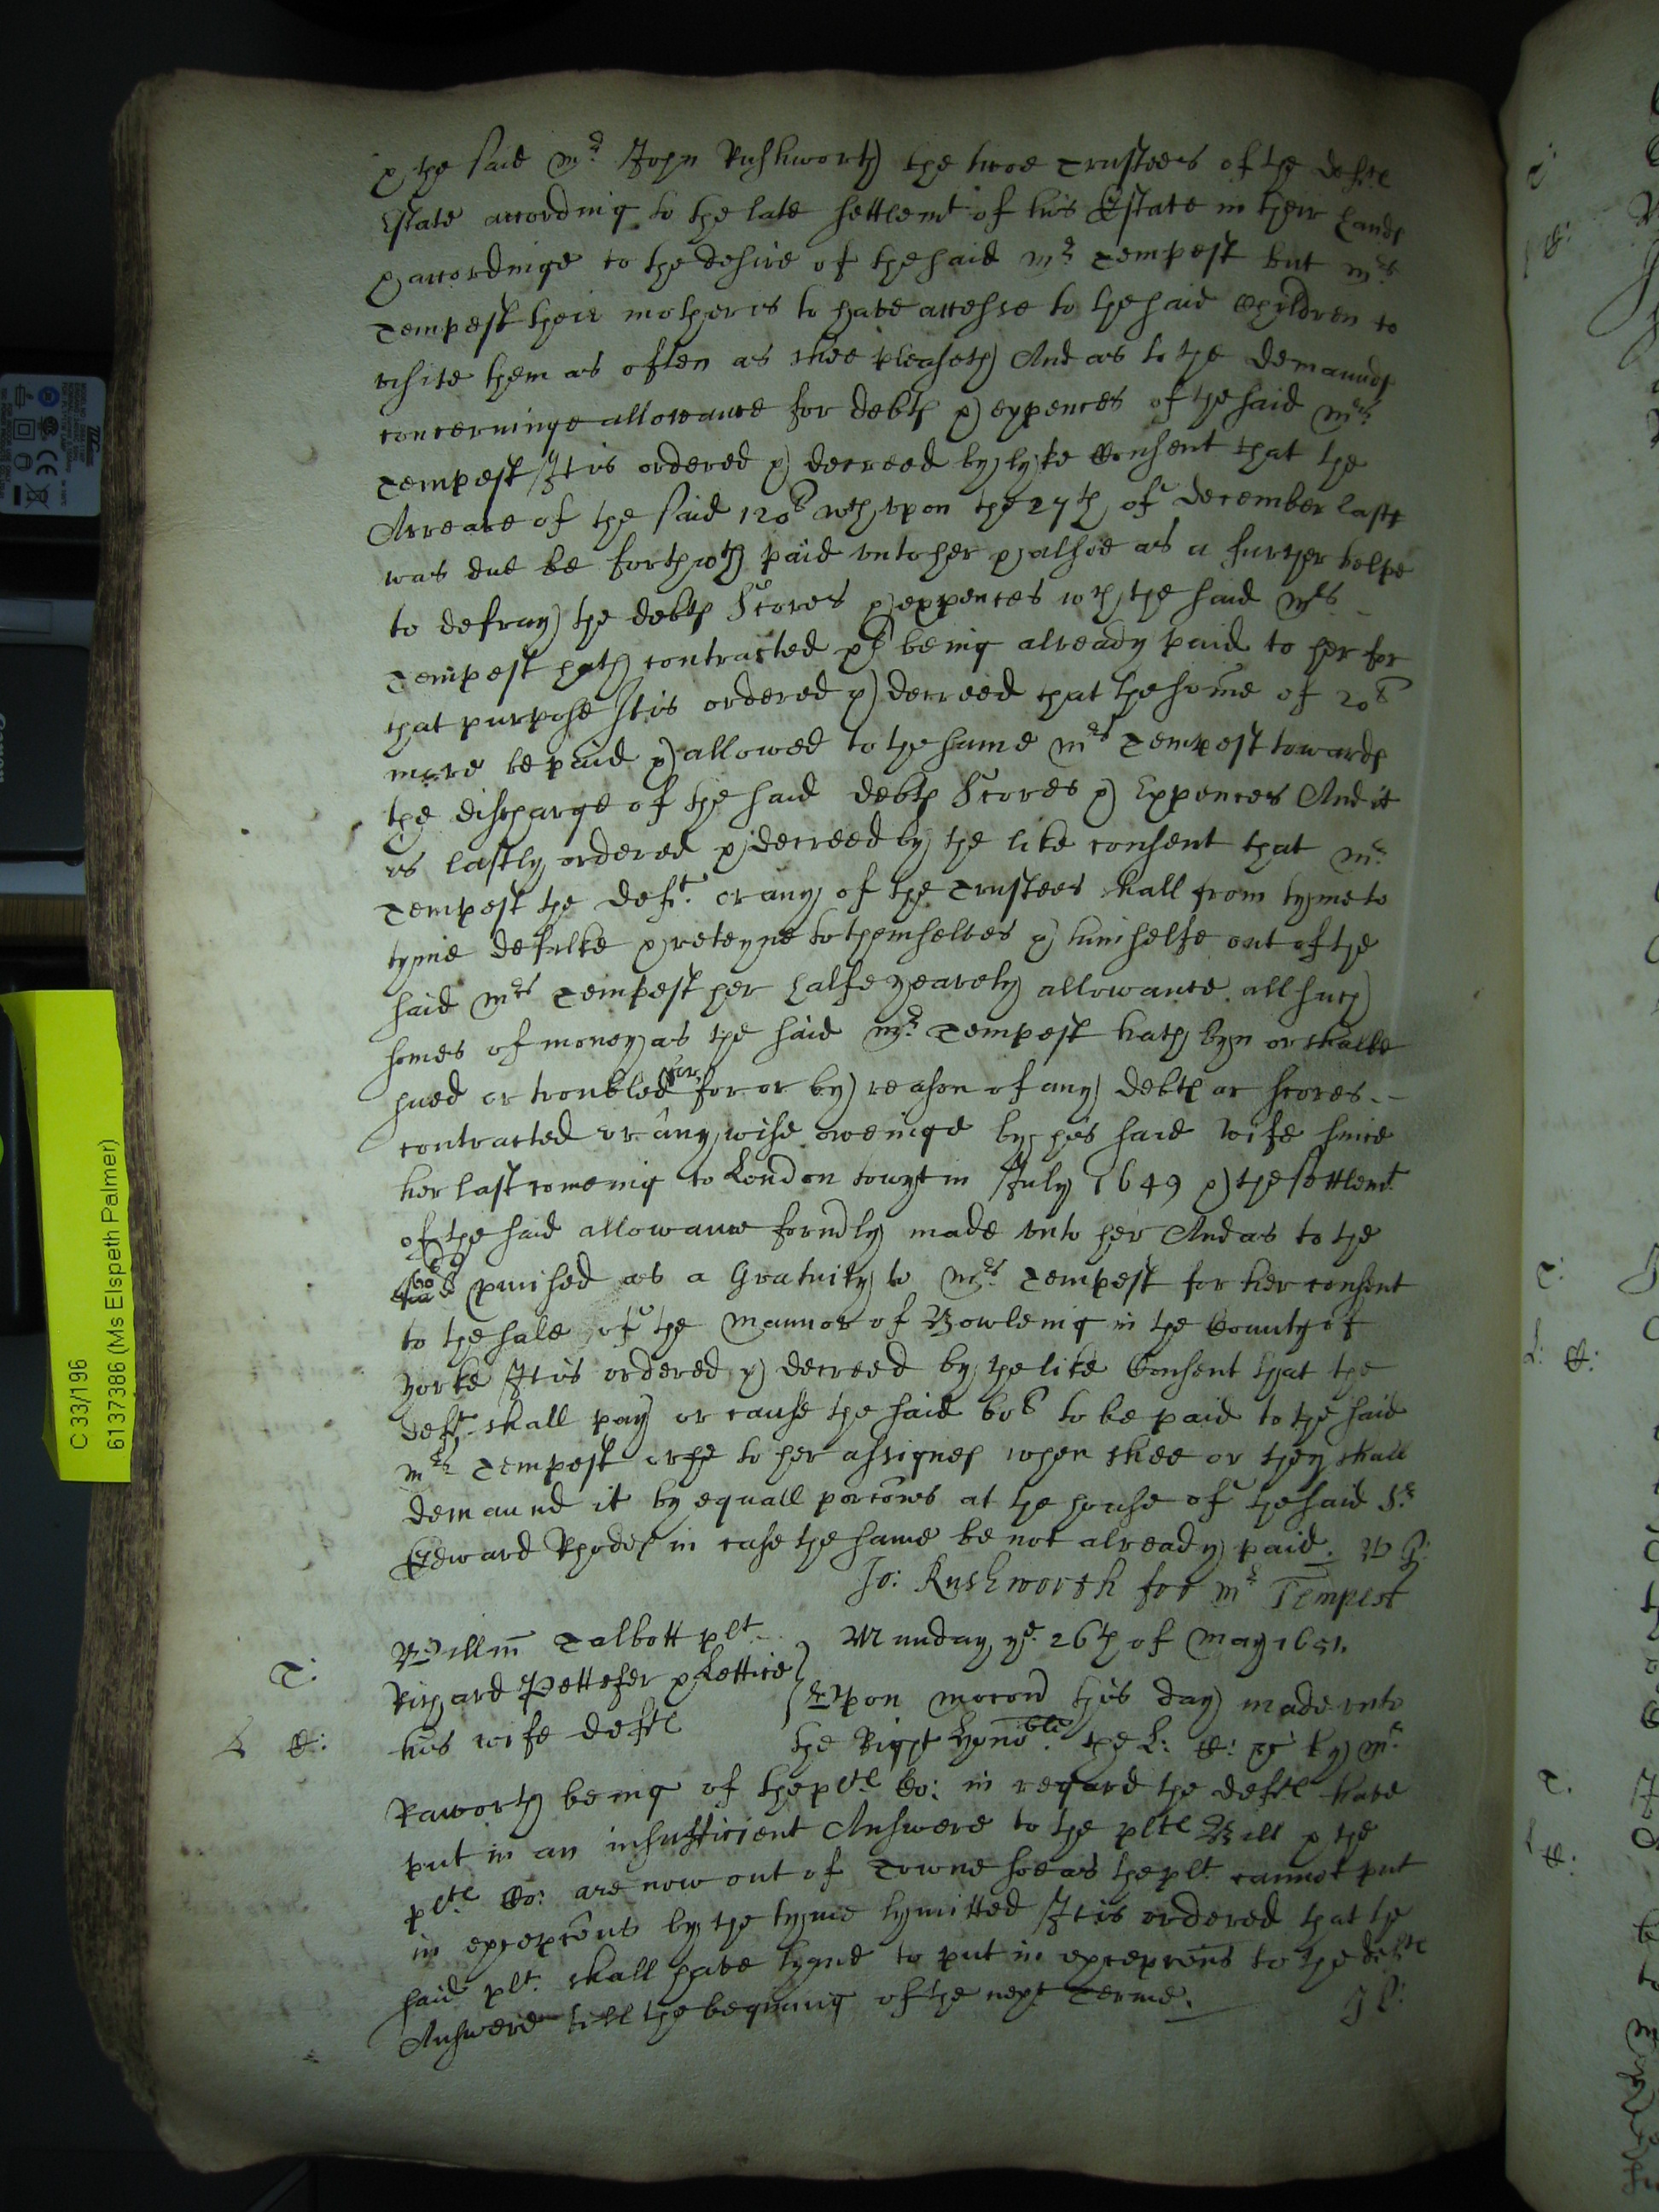 & the said Mr. John Rushworth the twoe Trustees of the Defts
Estate according to the late settlemt of his Estate in their hands
& accordinge to the desire of the said Mr. Tempest but Mrs.
Tempest their mother is to have accesse to the said Chyldren to
visite them as often as shee pleaseth And as to the demaunds
concerninge allowance for debts & expences of the said Mrs.
Tempest It is ordered & decreed by lyke Consent that the
Arreare of the said 120l wch upon the 27th of December laste
was due be forthwth paid unto her & alsoe as a further helpe
to defray the debts Scores & expences wch the said Mrs
Tempest hath contracted being already paid to her for
that purpose It is ordered & decreed that the some of 20l
more be paid & allowed to the same Mrs Tempest towards
the discharge of the said debts Scores & Expences And it
is lastly ordered & decreed by the like consent that Mr.
Tempest the Deft. or any of the Trustees shall from tyme to
tyme defalke & reteyne to themselves & himselfe out of the
said Mrs Tempest her halfe yearely allowance all such
somes of money as the said Mr. Tempest hath byn or shalbe
sued or troubled for or by reason of any debts or scores
contracted or any wise oweinge by his said wife since
her last comeing to London towyt in July 1649 & the settlemt
of the said allowance formdly made unto her And as to the
60l pmised as a Gratuity to Mrs. Tempest for her consent
to the sale of the mannor of Bowleing in the County of
Yorke It is ordered & decreed by the like Consent that the
Deft shall pay or cause the said 60l to be paid to the said
Mrs Tempest or to her assignes when shee or they shall
demaund it by equall porcons at the house of the said Sr
Edward Rhodes in case the same be not already paid.
Jo: Rushworth for Mr Tempest
Willm Talbott plt. Munday ye. 26th of May 1651.
T: Richard Pettefer & Lettice
his wife defts
Upon mocon this day made unto
the Right Honoble. the L: C: &c by Mr
L C:
Raworth being of the plts Co: in regard the defts have
put in an insufficient Answere to the plts Bill & the
plts Co: are now out of Towne soe as the plt. cannot put
in excepcons by the tyme lymitted It is ordered that the
said plt. shall have tyme to put in excepcons to the defts
Answere till the begining of the next Terme.
C 33/196
61373786 (Ms Elspeth Palmer)